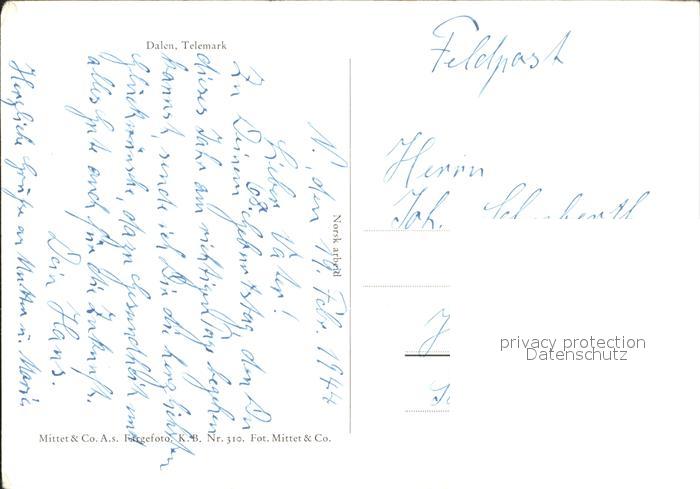 Dalen, Telemark
Feldpost
N., den 19. Febr. 1944
Lieber Vater!
Zu Deinem 68. Geburtstag, den Du
dieses Jahr am richtigen Tage begehen
kannst, sende ich Dir die herzlichsten
Glückwünsche, dazu Gesundheit und
alles Gute auch für die Zukunft.
Dein Hans.
Herzliche Grüße an Mutter u. Marie.
Norsk arbeid
Herrn
Joh.
privacy protection
Datenschutz
Mittet & Co. A.s. Fargefoto. K. B. Nr. 310. Fot. Mittet & Co.